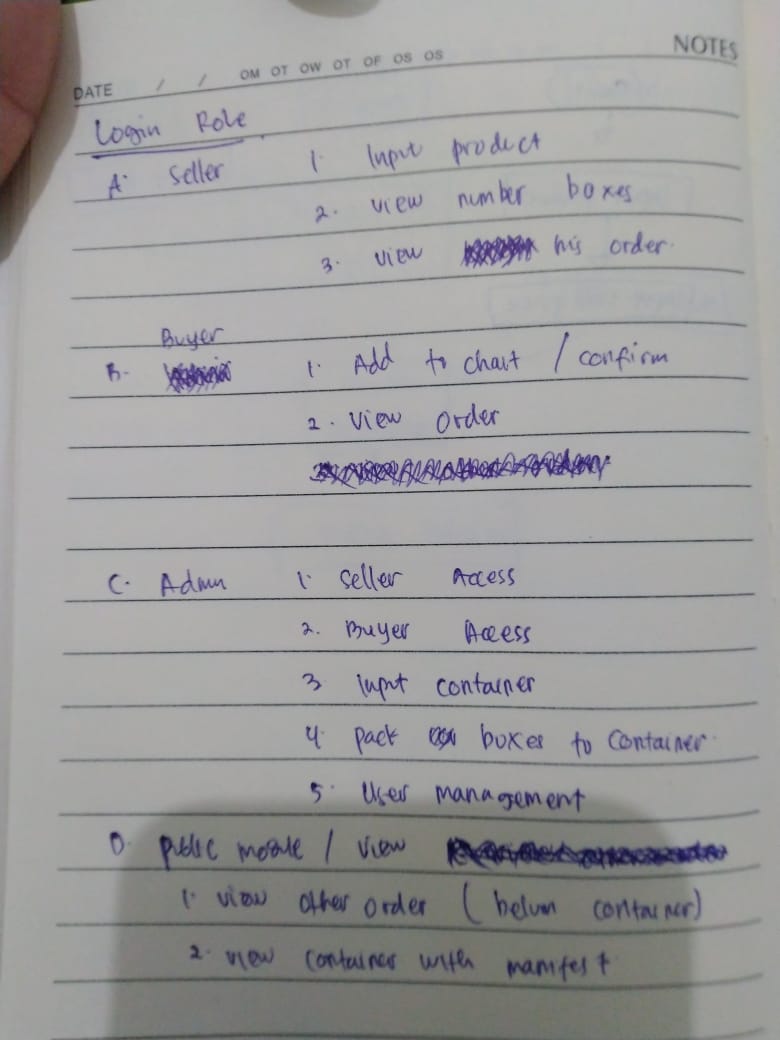 NOTES
DATE / / OM OT OW OT OF OS OS
Login Role
A. Seller 1. Input product
2. View number boxes
3. View his order.
Buyer
B. 1. Add to chart / confirm
2. View Order
C. Admin 1. Seller Access
2. Buyer Access
3 Input container
4. pack boxes to Container.
5. User management
D. public module / View
1. view other order (belum container)
2. view container with manifest